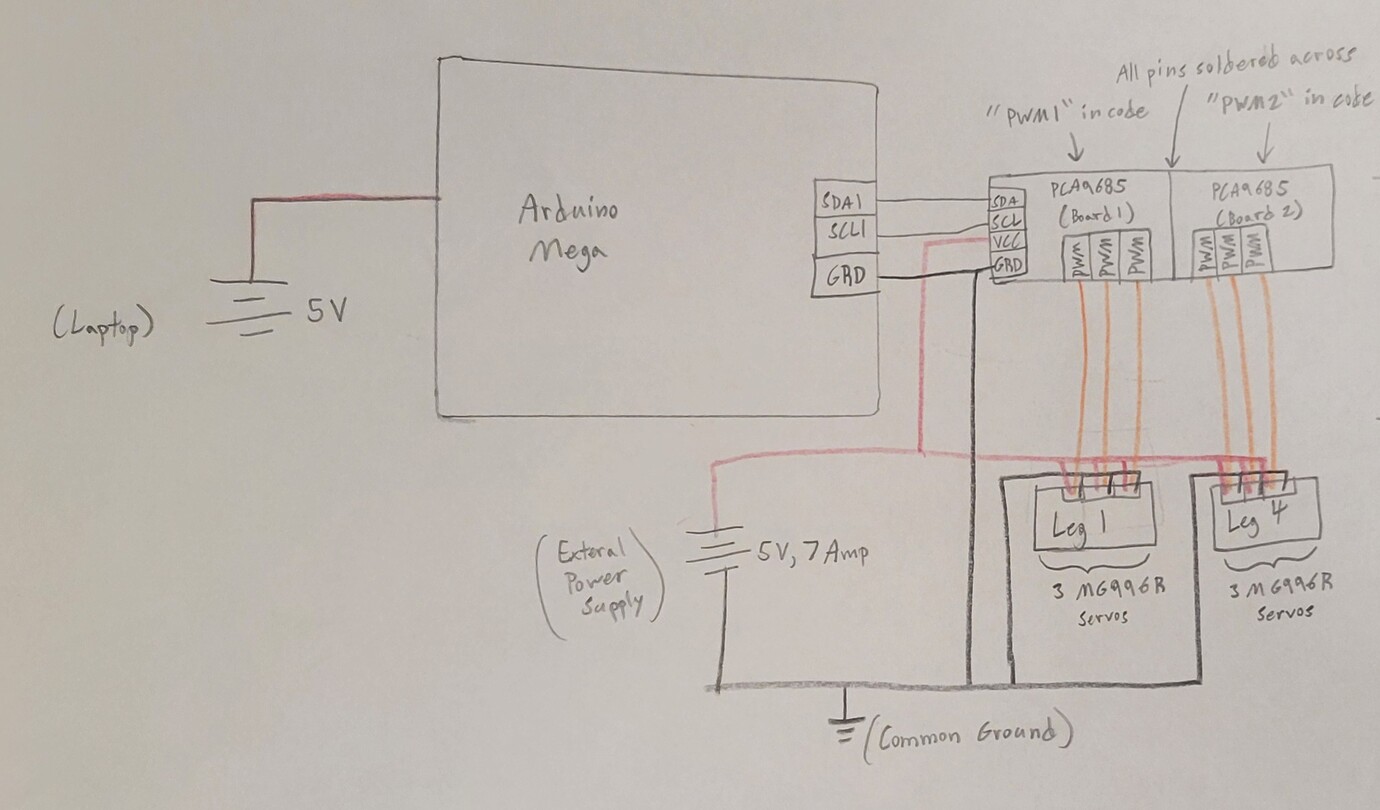 All pins soldered across
"PWM1" in code
"PWM2" in code
Arduino
Mega
SDA1
SCL1
GRD
SDA
SCL
VCC
GRD
PCA9685
(Board 1)
PWM
PWM
PWM
PCA9685
(Board 2)
PWM
PWM
PWM
(Laptop)
5V
(Exteral
Power
Supply)
5V, 7 Amp
Leg 1
3 MG996R
Servos
Leg 4
3 MG996R
Servos
(Common Ground)